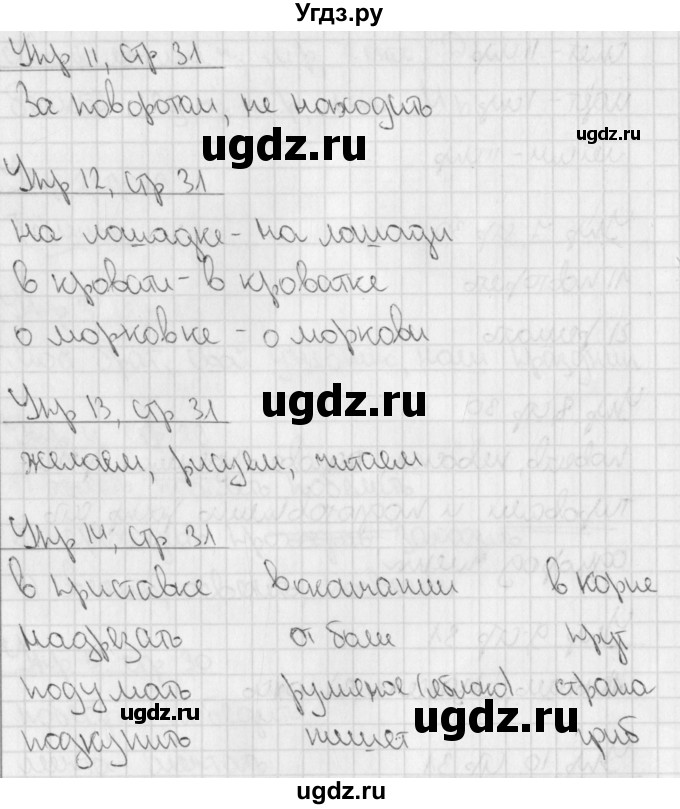 Угдз.ру
Упр 11, стр 31
За поворотом, не находить
ugdz.ru
ugdz.ru
Упр 12, стр 31
на лошадке - на лошади
в кровати - в кроватке
о морковке - о моркови
ugdz.ru
Упр 13, стр 31
желаем, рисуем, читаем
Упр 14, стр 31
в приставке в окончании в корне
надрезать от боли прут
подумать румяное (яблоко) страна
ugdz.ru ugdz.ru
подкупить пишет гриб